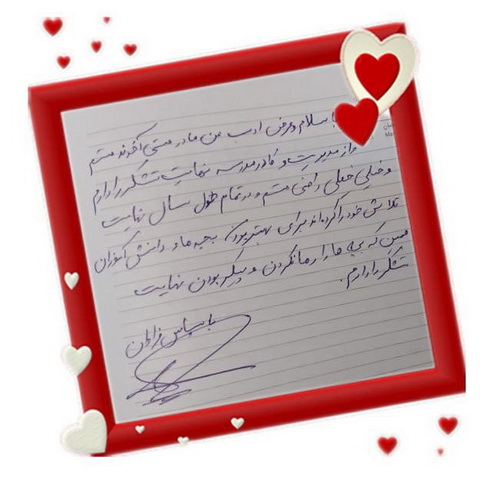 با سلام و عرض ادب من مادر هستی آخوند هستم
و از مدیریت و کادر مدرسه نهایت تشکر را دارم
و خیلی خیلی راضی هستم و در تمام طول سال نهایت
تلاش خود را کرده‌اند برای بهتر بودن بچه‌ها و دانش آموزان
همین که بچه ها را رها نکردن و پیگیر بودن نهایت
تشکر را دارم.
با سپاس فراوان